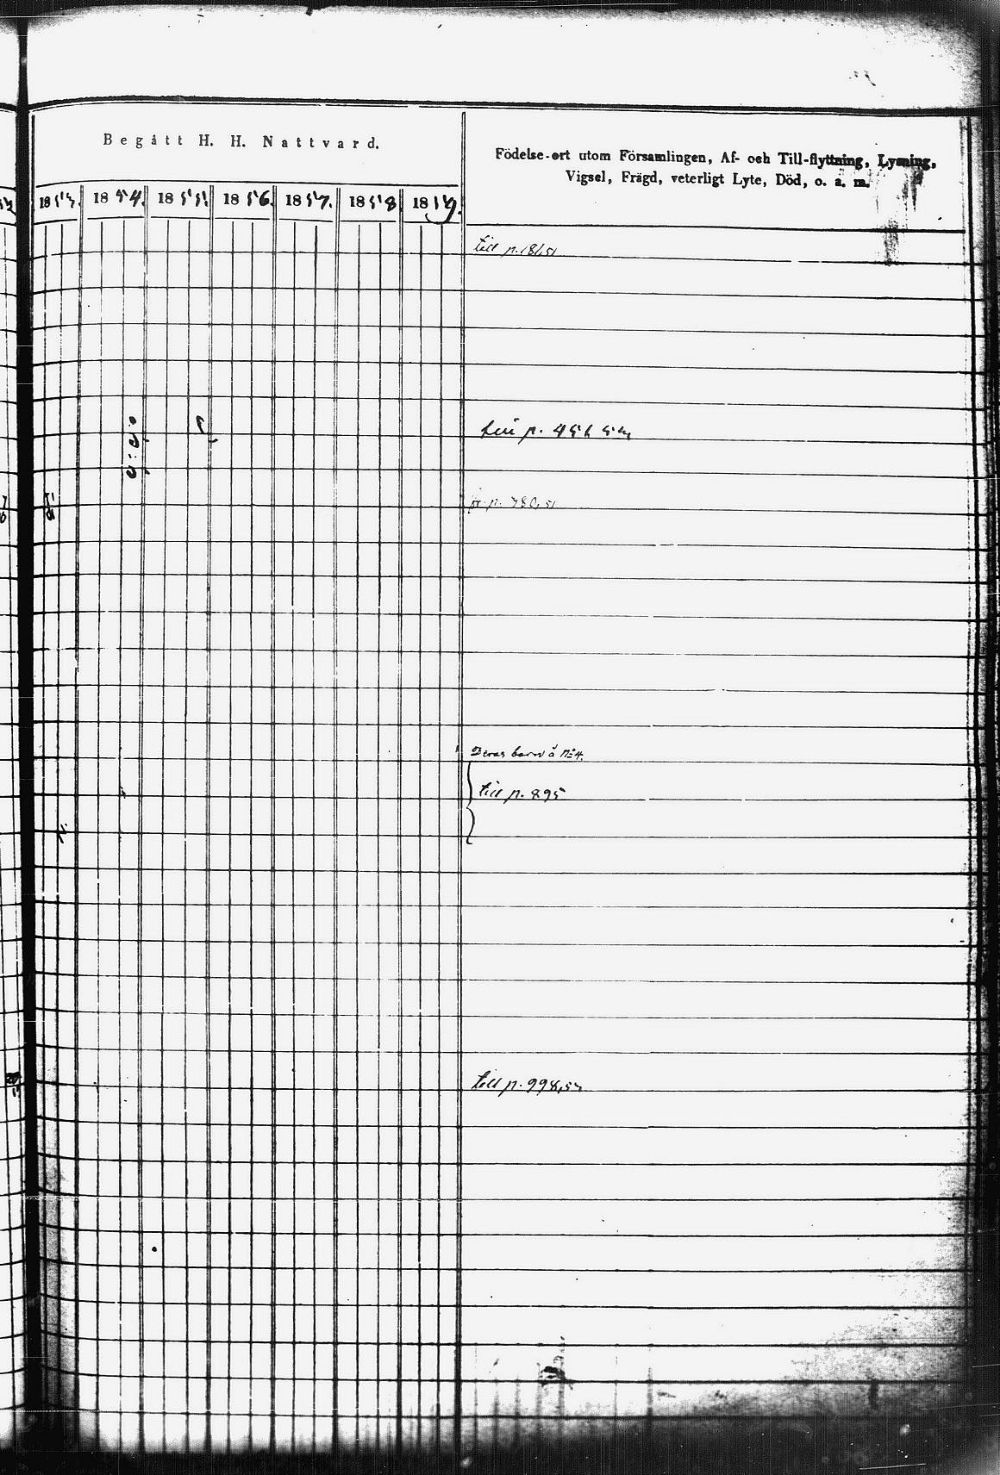 Begått H. H. Nattvard.
Födelse-ort utom Församlingen, Af- och Till-flyttning, Lysning,
Vigsel, Frägd, veterligt Lyte, Död, o. s. m.
1853. 1854. 1855. 1856. 1857. 1858. 1859.
till p. 181,51
till p. 456
fr. p. 780,51
Deras barn å No 4.
till p. 895
till p. 998,53